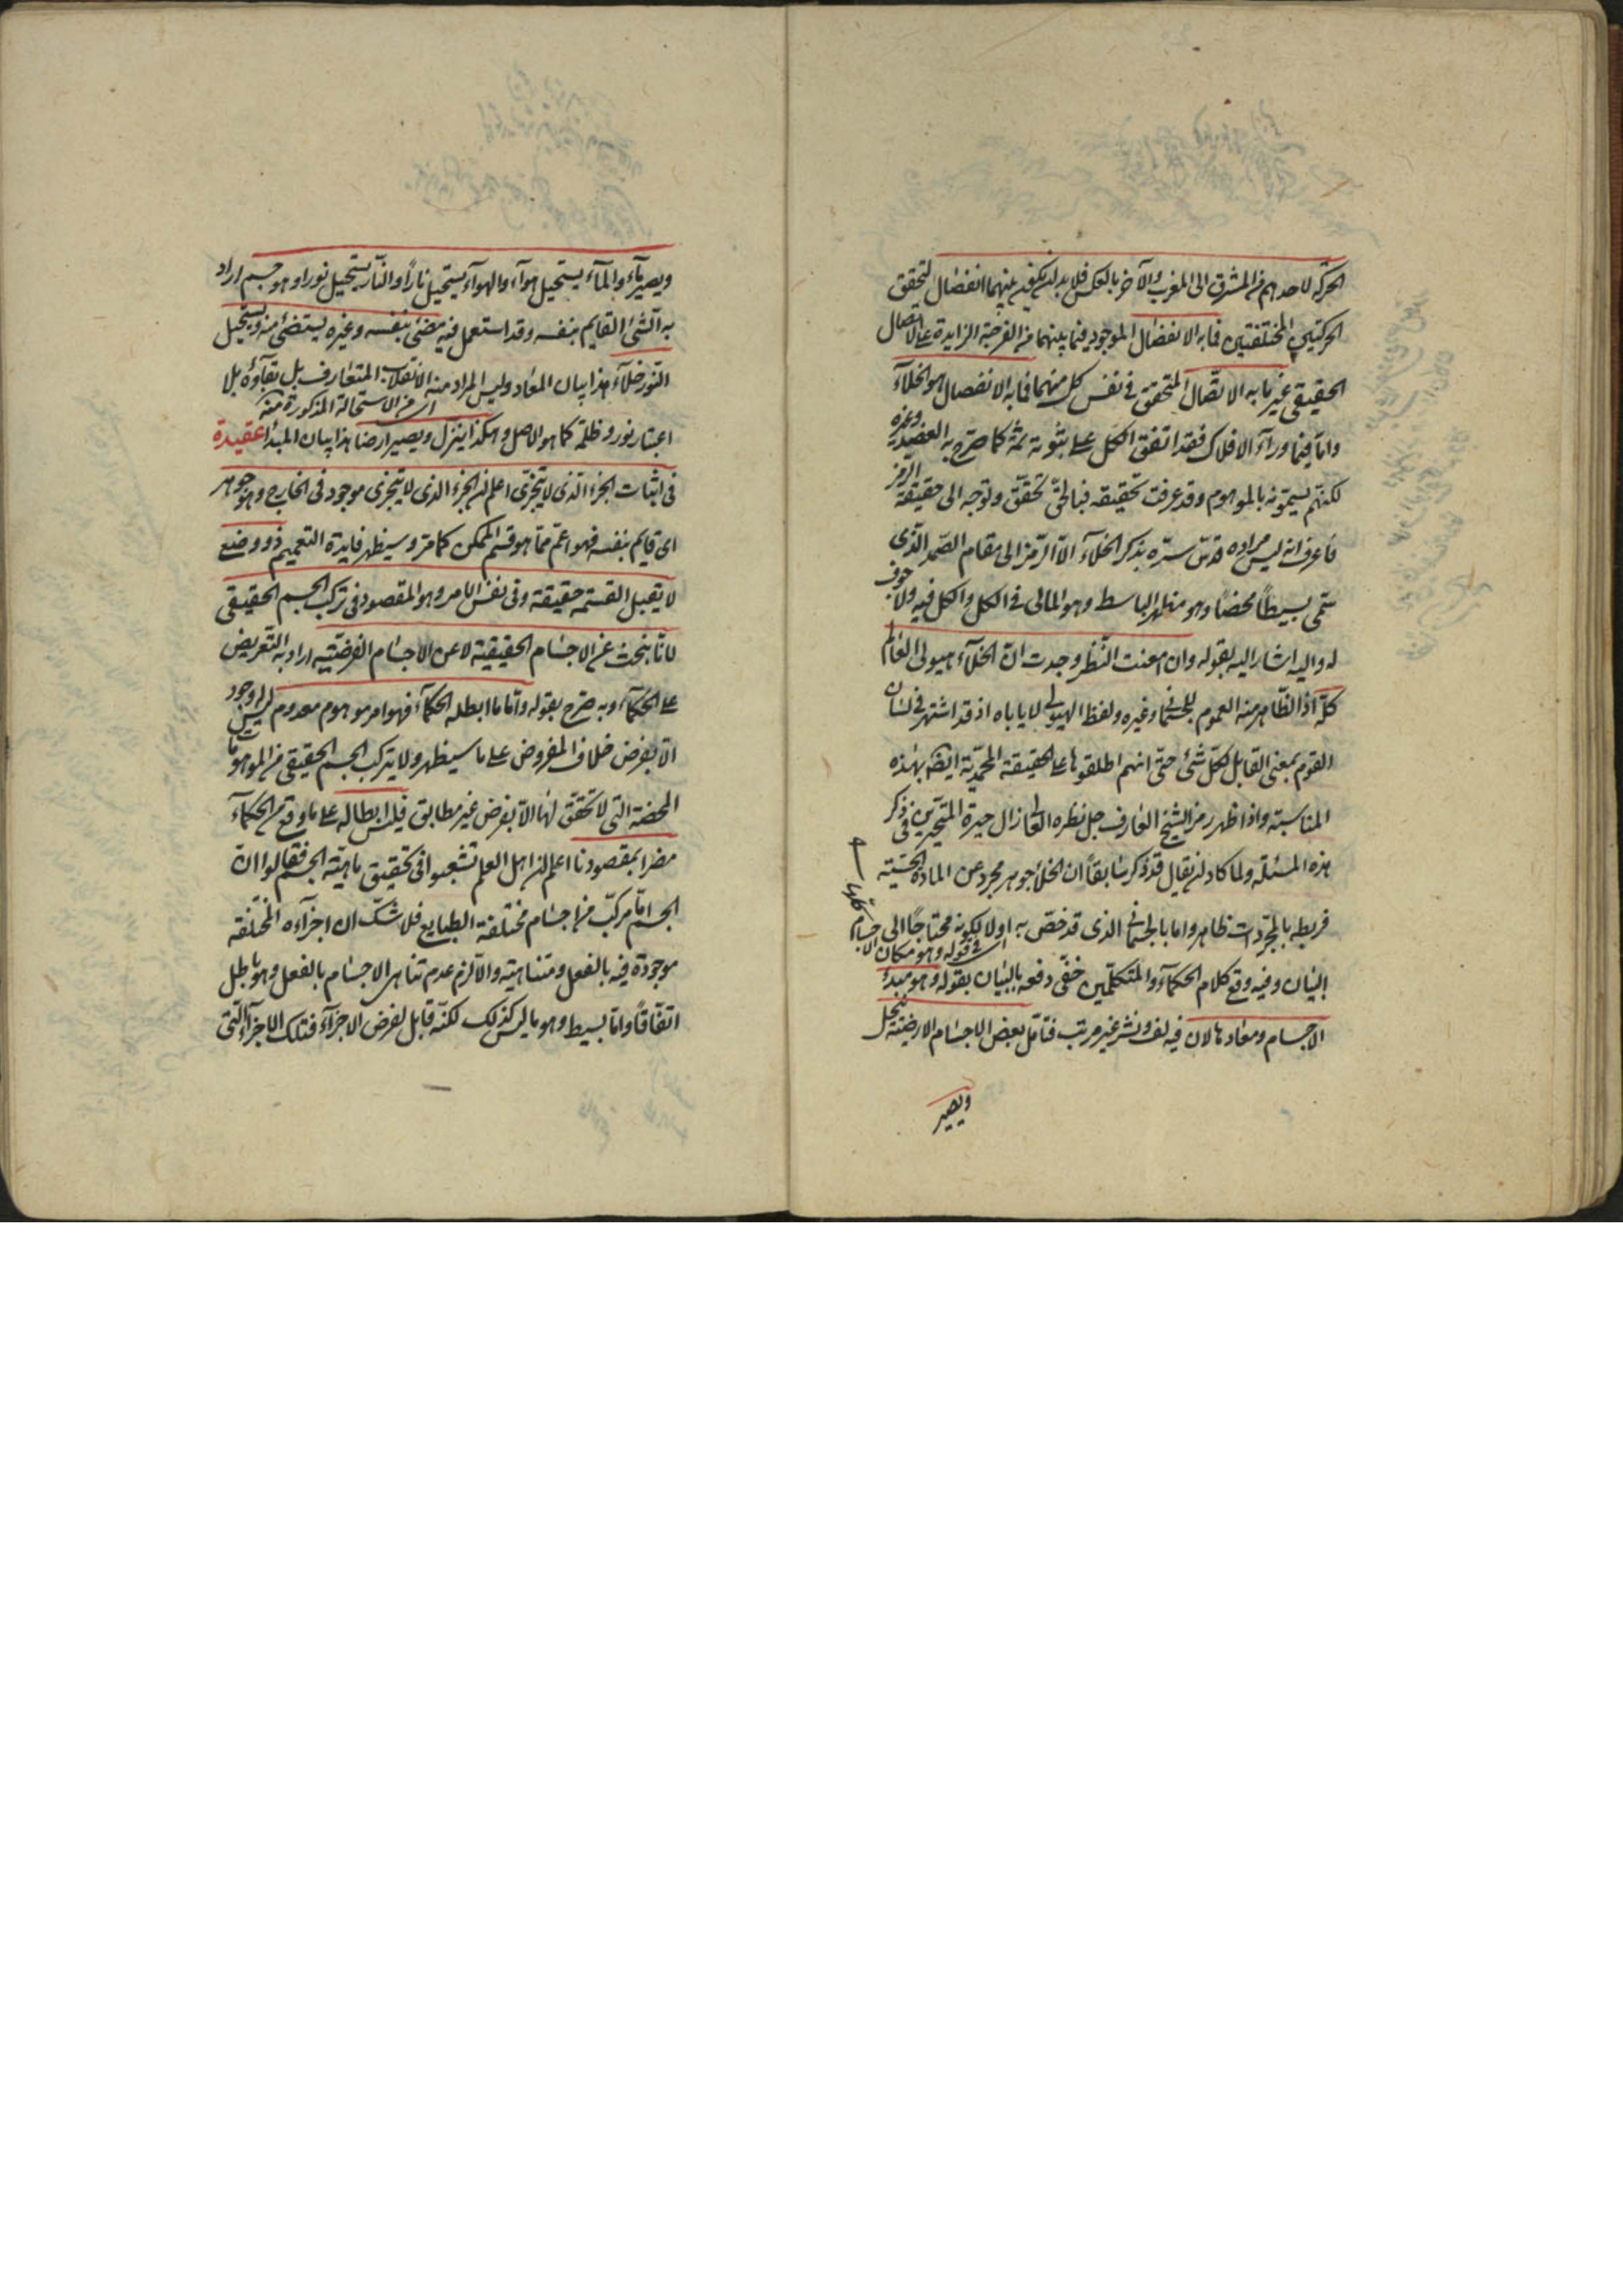 الحركة لاحدهم من المشرق الى المغرب والآخر بالعكس فلا بد ان يكون بينهما انفصال لتحقق
الحركتين المختلفتين فما به الانفصال الموجود فيما بينهما من الفرجة الزايدة على الاتصال
الحقيقى غير ما به الاتصال المتحقق فى نفس كل منهما فما به الانفصال هو الخلآء
واما فيما ورآء الافلاك فقد اتفق الكل على ثبوته ثمة كما صرح به العضد وغيره
لكنهم يسمونه بالموهوم وقد عرفت تحقيقه فبالحق تحقق وتوجه الى حقيقة الرمز
فاعرف انه ليس مراده قدس سره بذكر الخلآء الا الرمز الى مقام الصمد الذى
سمى بسيطاً محضاً وهو مظهر الباسط وهو المالى فى الكل والكل فيه ولا جوف
له واليه اشار اليه بقوله وان امعنت النظر وجدت ان الخلآء هيولى العالم
كله اذ الظاهر منه العموم للجسمانى وغيره ولفظ الهيولى لا ياباه اذ قد اشتهر فى لسان
القوم بمعنى القابل لكل شئ حتى انهم اطلقوها على الحقيقة المحمدية ايضا بهذه
المناسبة واذا ظهر رمز الشيخ العارف جل نظره العا زال حيرة المتحيرين فى ذكر
هذه المسئلة ولما كاد ان يقال قد ذكر سابقاً ان الخلأ جوهر مجرد عن المادة الحسية
فربطه بالمجردات ظاهر واما بالجسمانى الذى قد خص به اولا لكونه محتاجاً الى
اى فى قوله وهو مكان الاجسام كلها
البيان وفيه وقع كلام الحكمآء والمتكلمين خفى دفعه بالبيان بقوله وهو مبدأ
الاجسام ومعادها لان فيه لف ونشر غير مرتب فتامل بعض الاجسام الارضية ينحل
ويصير
ويصير مآء والمآء يستحيل هوآء والهوآء يستحيل ناراً والنار يستحيل نورا وهو جسم اراد
به الشئ القايم بنفسه وقد استعمل فيه مضئ بنفسه وغيره يستضئ منه ويستحيل
النور خلآء هذا بيان المعاد وليس المراد منه الانقلاب المتعارف بل بقآؤه بلا
اى من الاستحالة المذكورة منه
اعتبار نور وظلمة كما هو الاصل وهكذا يتنزل ويصير ارضا هذا بيان المبدأ عقيدة
فى اثبات الجزء الذى لا يتجزى اعلم ان الجزء الذى لا يتجزى موجود فى الخارج وهو جوهر
اى قايم بنفسه فهو اعم مما هو قسم الممكن كما مر وسيظهر فايدة التعميم ذو وضع
لا يقبل القسمة حقيقة وفى نفس الامر وهو المقصود فى تركب الجسم الحقيقى
لانا نبحث عن الاجسام الحقيقية لا عن الاجسام الفرضية اراد به التعريض
على الحكمآء وبه صرح بقوله واما ما ابطله الحكمآء فهو امر موهوم معدوم ليس له وجود
الا بفرض خلاف المفروض على ما سيظهر ولا يتركب الجسم الحقيقى من الموهومات
المحضة التى لا تحقق لها الا بفرض غير مطابق فليس ابطاله على ما وقع من الحكمآء
مضرا بمقصودنا اعلم ان اهل العلم تشعبوا فى تحقيق ماهية الجسم فقالوا ان
الجسم اما مركب من اجسام مختلفة الطبايع فلا شك ان اجزآءه المختلفة
موجودة فيه بالفعل ومتناهية والا لزم عدم تناهى الاجسام بالفعل وهو باطل
اتفاقاً واما بسيط وهو ما ليس كذلك لكنه قابل لفرض الاجزآء فتلك الاجزآء التى